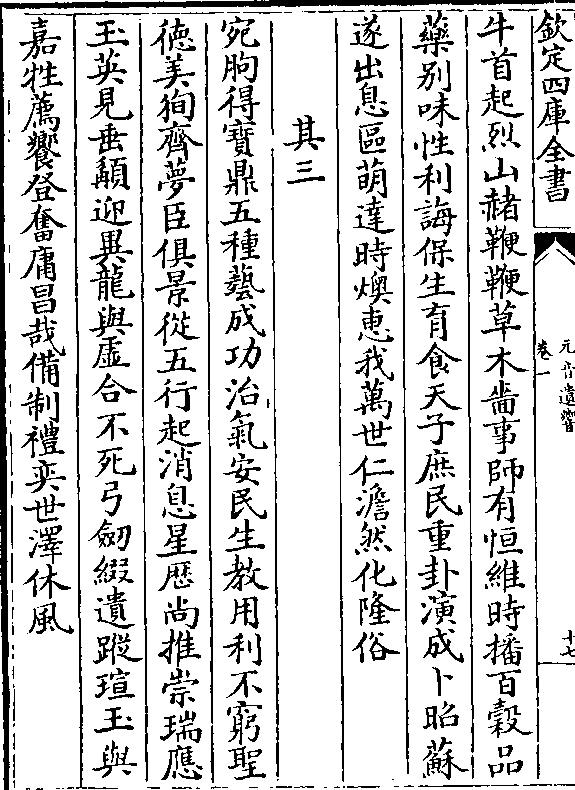 欽定四庫全書
元音遺響
卷一
十七
牛首起烈山赭鞭鞭草木嗇事師有恒維時播百穀品
藥别味性利誨保生育食天子庶民重卦演成卜昭蘇
遂出息區萌達時燠恵我萬世仁澹然化隆俗
其三
宛朐得寶鼎五種藝成功治氣安民生教用利不窮聖
徳美狥齊夢臣俱景從五行起消息星厯尚推崇瑞應
玉英見垂顒迎異龍與虚合不死弓劒綴遺蹤瑄玉與
嘉牲薦饗登奮庸昌哉備制禮奕世澤休風